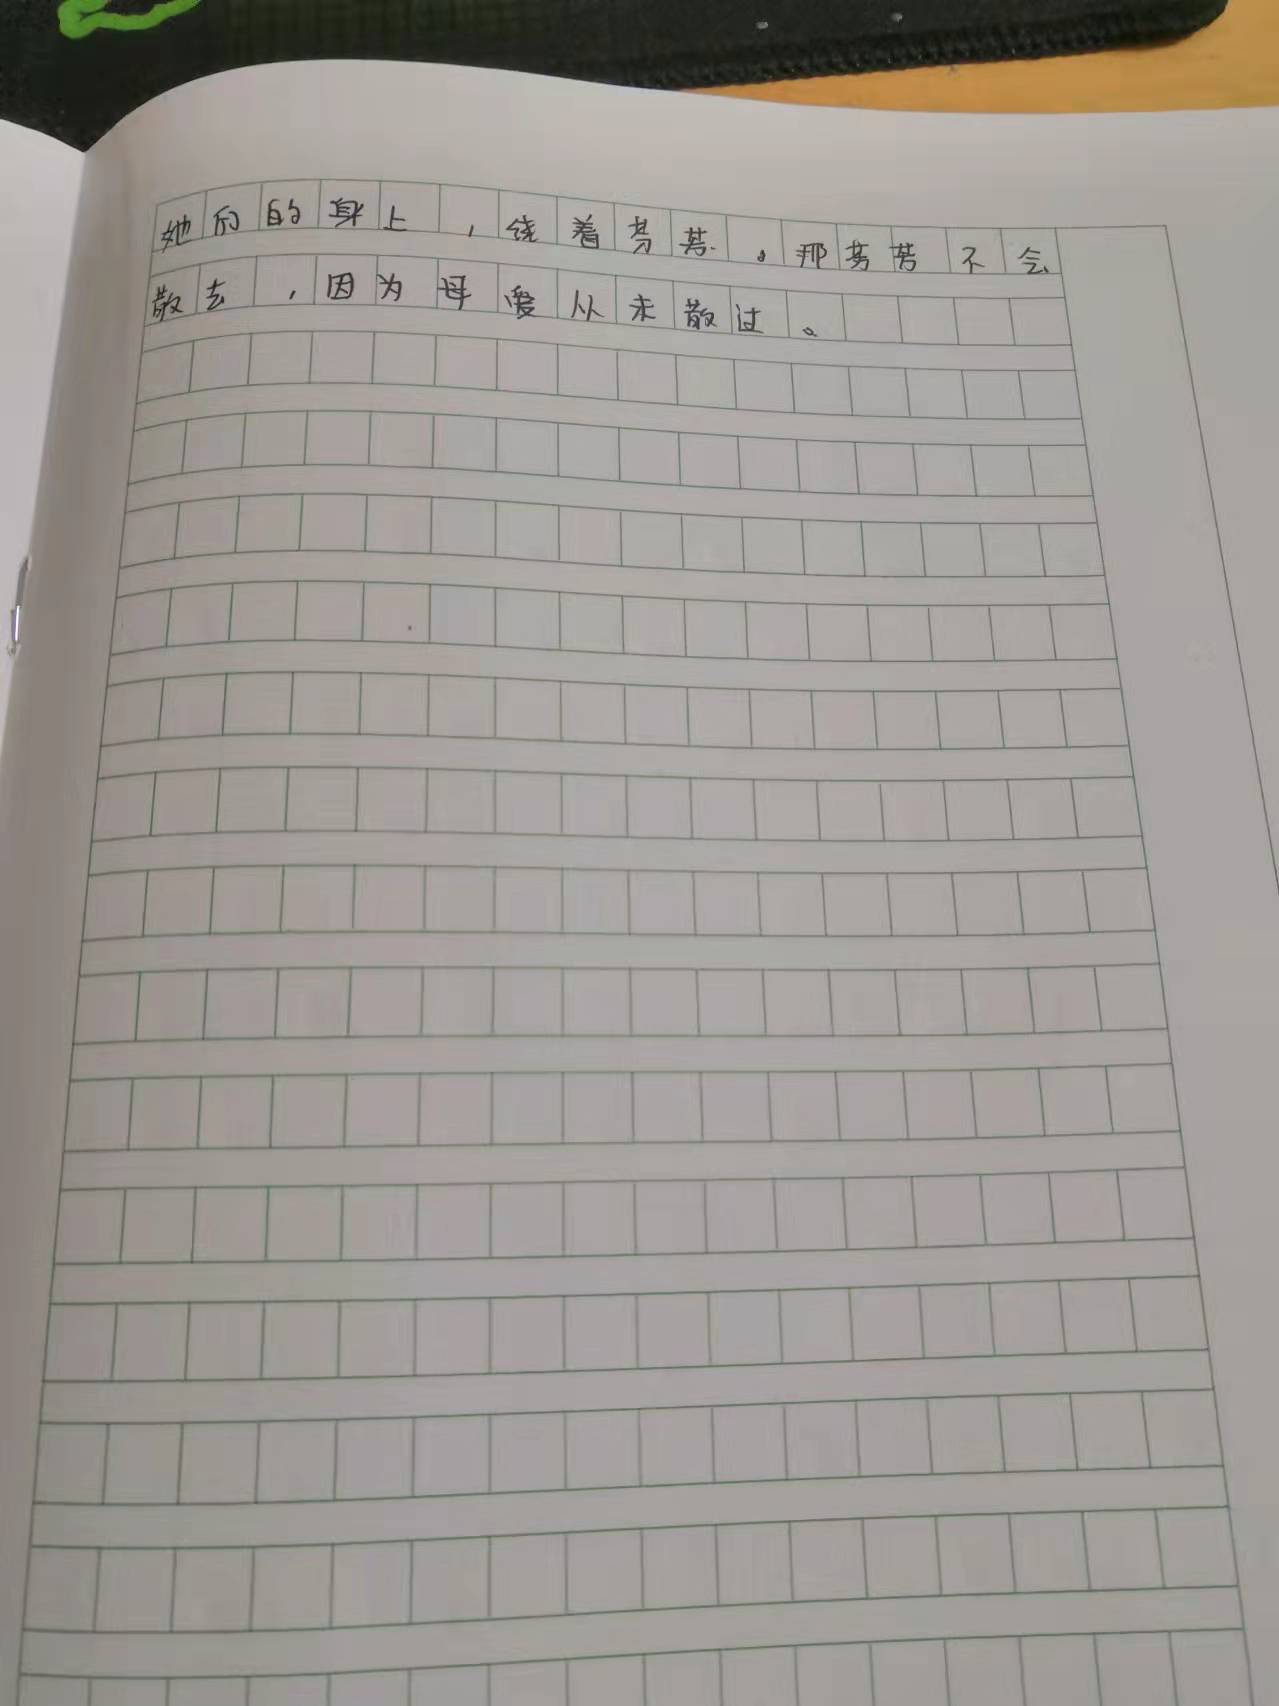 她们的身上，绕着芬芳。那芬芳不会
散去，因为母爱从未散过。